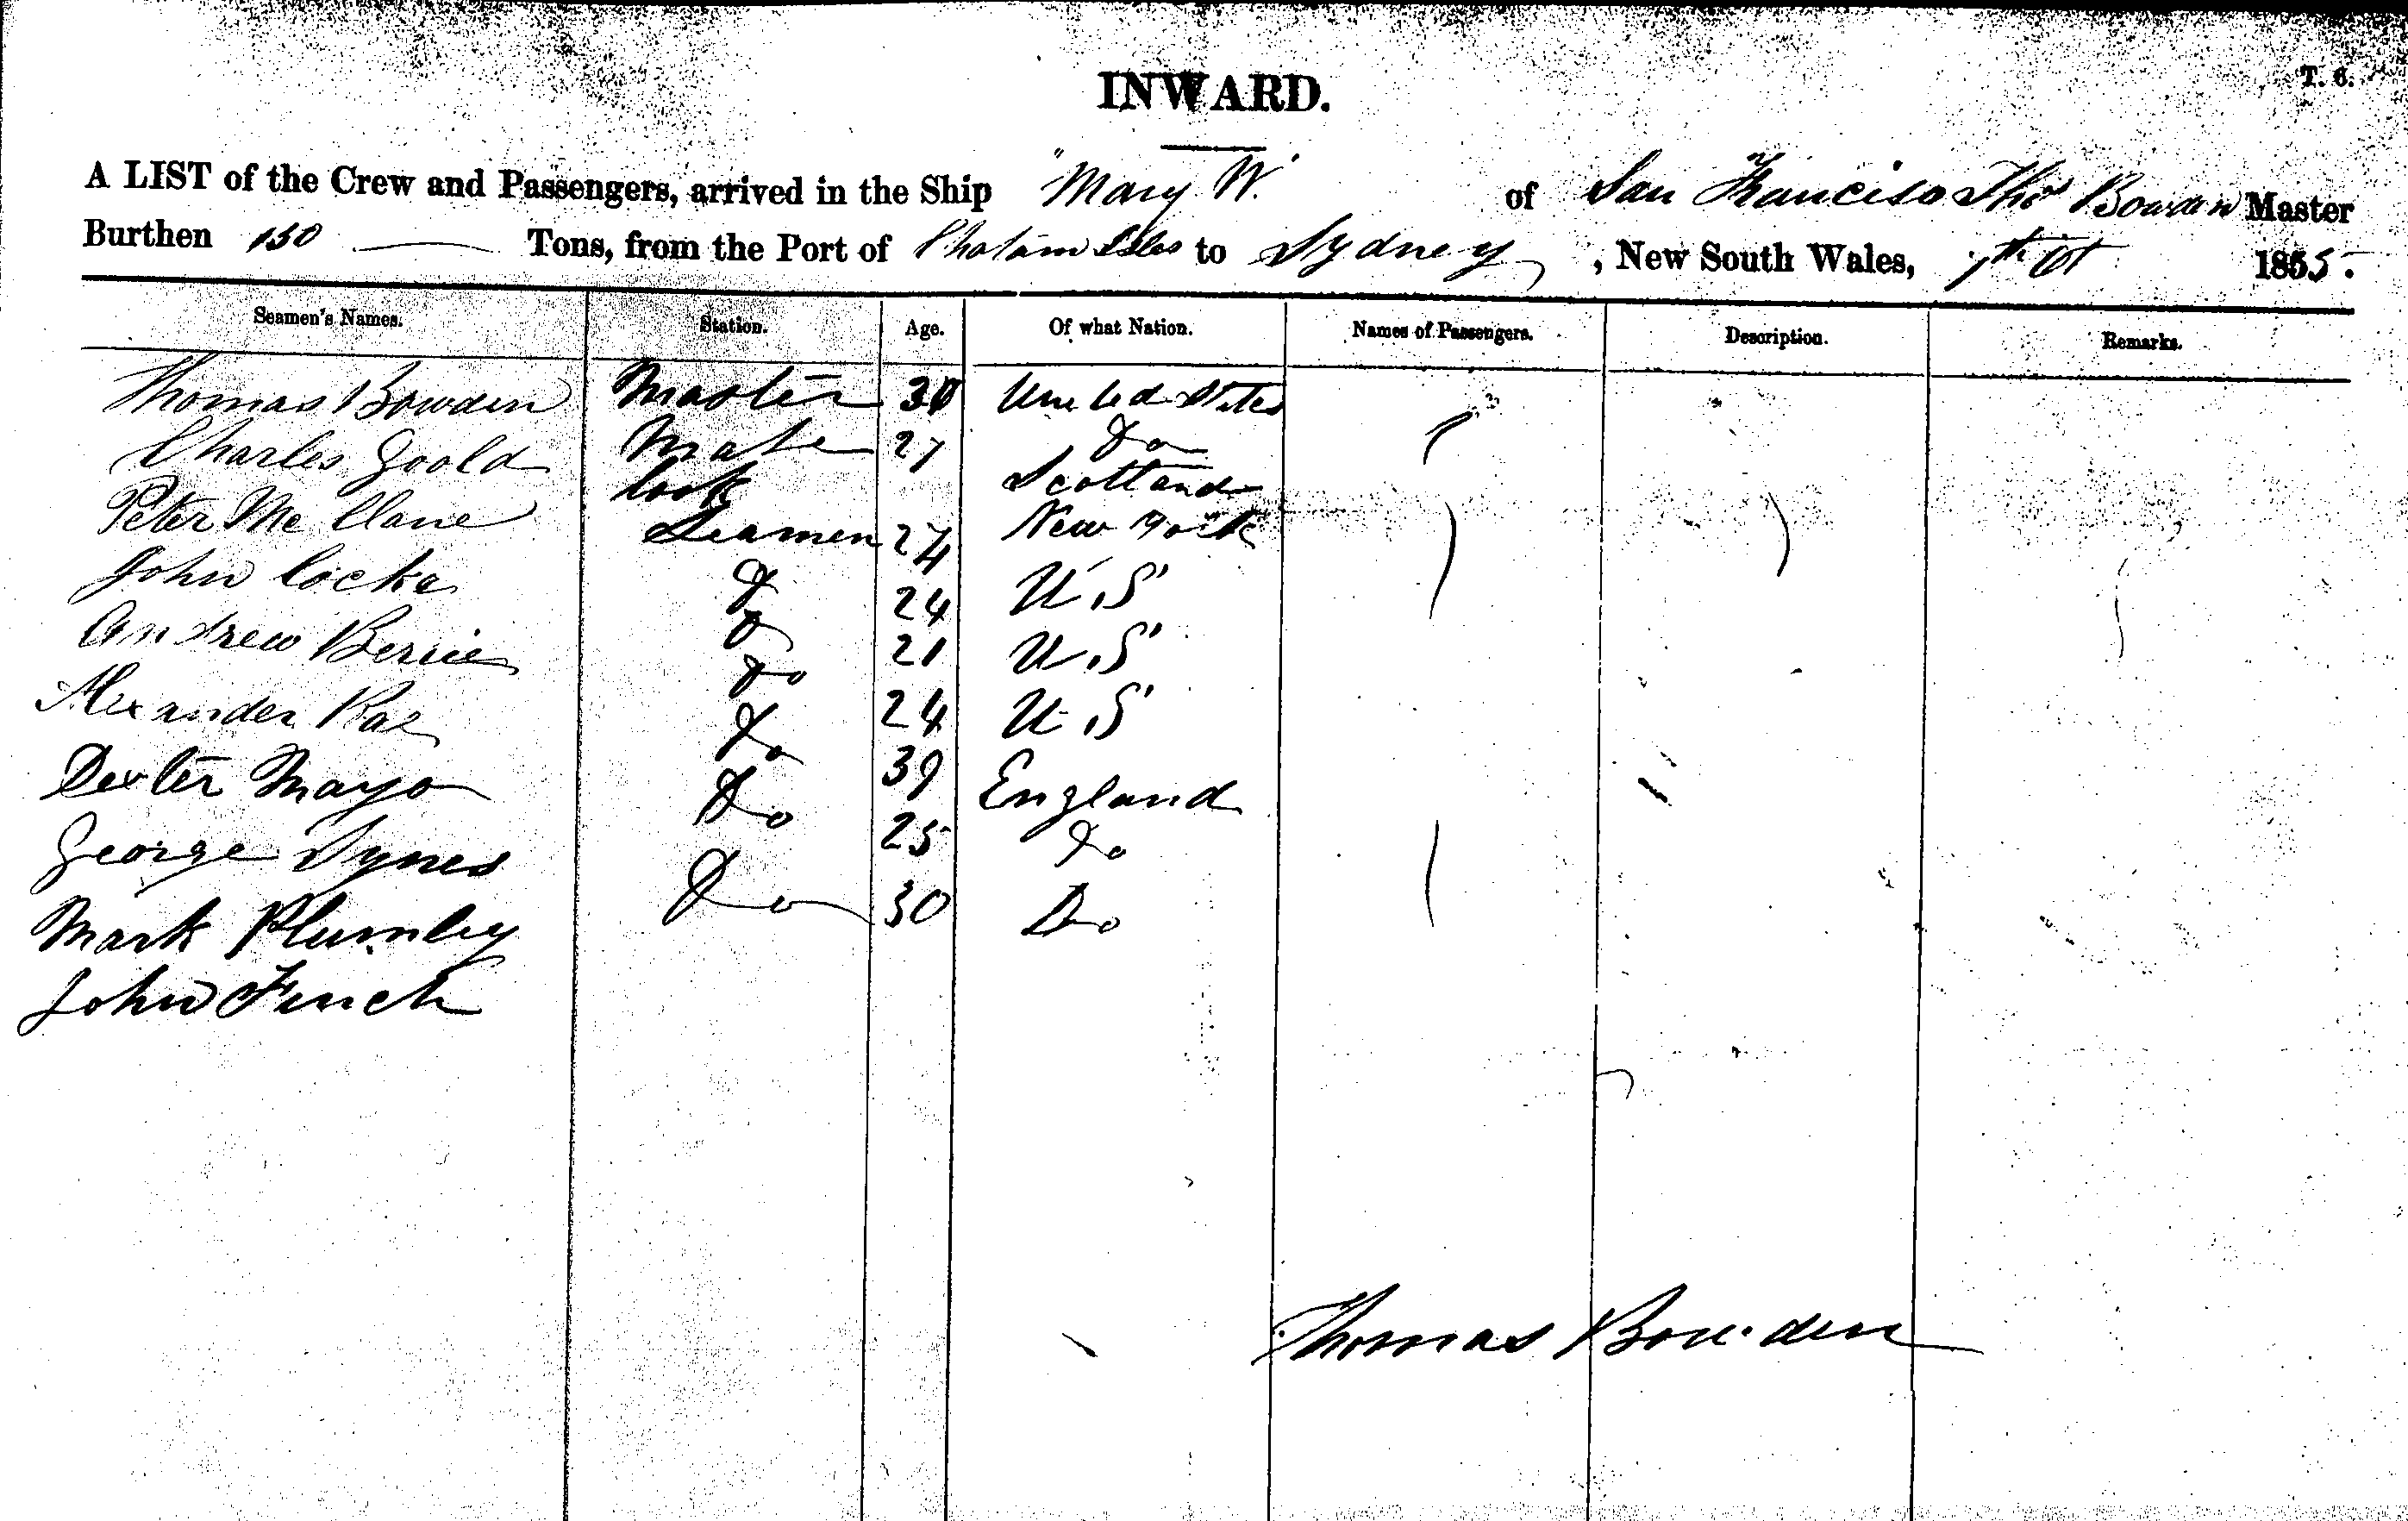 T. 6.
INWARD.
A LIST of the Crew and Passengers, arrived in the Ship "Mary W." of San Francisco Thos Bowden Master
Burthen 130 Tons, from the Port of Chatam Isles to Sydney, New South Wales, 7th Oct 1855.
Seamen's Names. Station. Age. Of what Nation. Names of Passengers. Description. Remarks.
Thomas Bowden Master 30 United States
Charles Goold Mate 27 Do
Peter McClane Cook Scotland
John Cocke Seamen 24 New York
Andrew Do 24 U.S
Alexander Rae Do 21 U.S
Dexter Mayo Do 24 U.S
George Synes Do 39 England
Mark Plumley Do 25 Do
John Finch Do 30 Do
Thomas Bowden